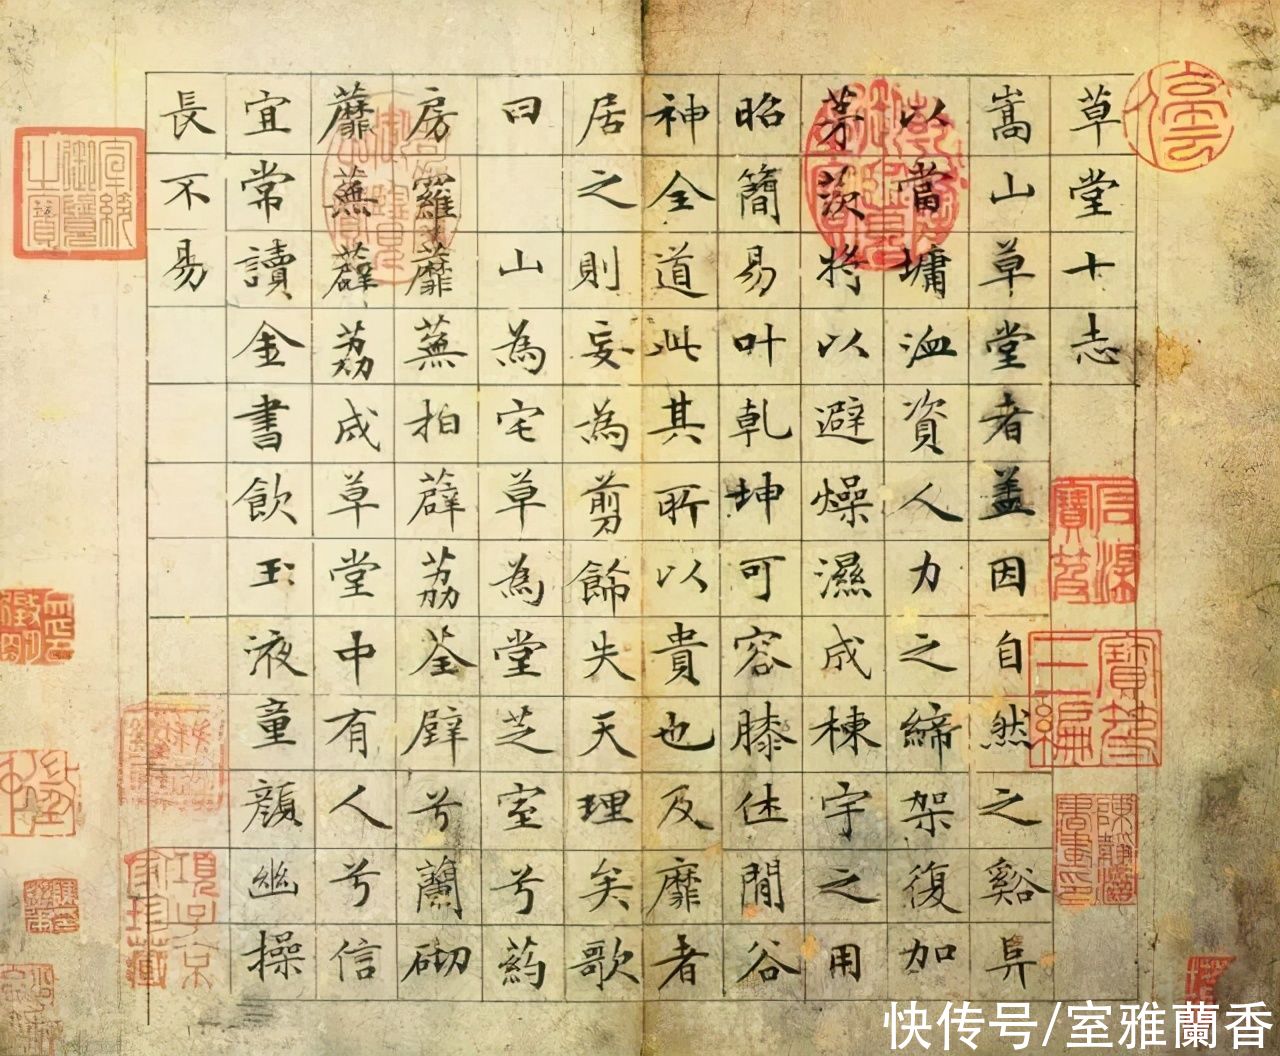 草堂十志
嵩山草堂者盖因自然之谿阜
以當墉洫資人力之締架復加
茅茨将以避燥濕成棟宇之用
昭簡易叶乾坤可容膝休閒谷
神全道此其所以貴也及靡者
居之則妄為剪飾失天理矣歌
曰 山為宅草為堂芝室兮葯
房羅蘼蕪拍薜荔荃壁兮蘭砌
蘼蕪薜荔成草堂中有人兮信
宜常讀金書飲玉液童顏幽操
長不易
石渠寶笈
寶笈三編
嘉慶御覽之寶
宣統御覽之寶
項子京家珍藏
快传号/室雅蘭香